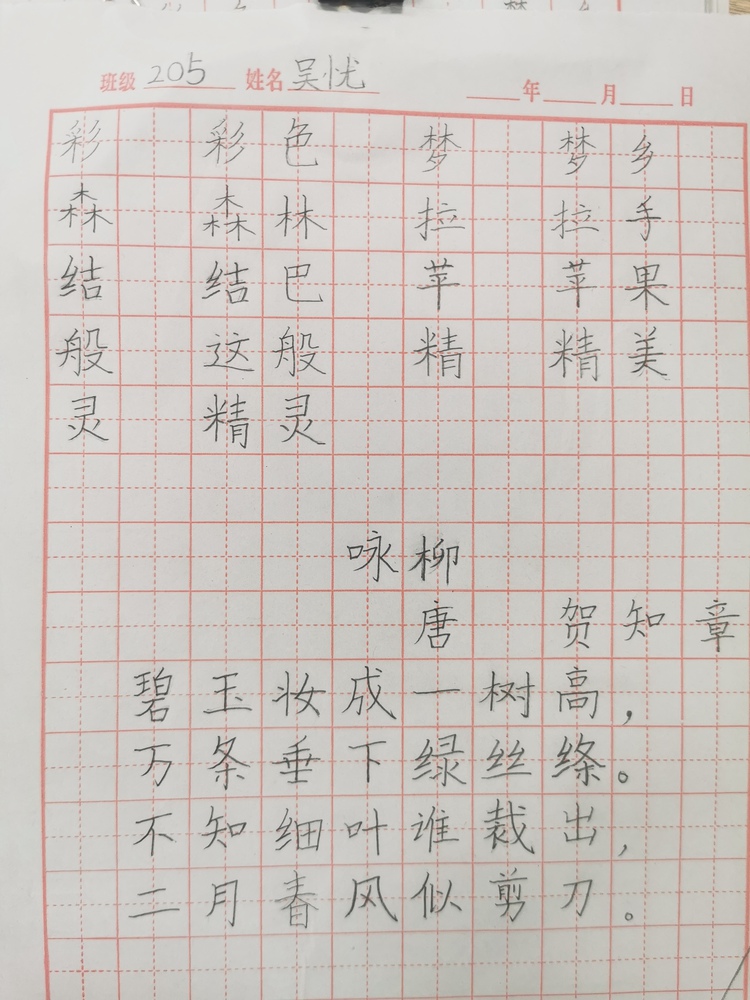 班级 205 姓名 吴忧 年 月 日
彩 彩色 梦 梦乡
森 森林 拉 拉手
结 结巴 苹 苹果
般 这般 精 精美
灵 精灵
咏柳
唐 贺知章
碧玉妆成一树高，
万条垂下绿丝绦。
不知细叶谁裁出，
二月春风似剪刀。